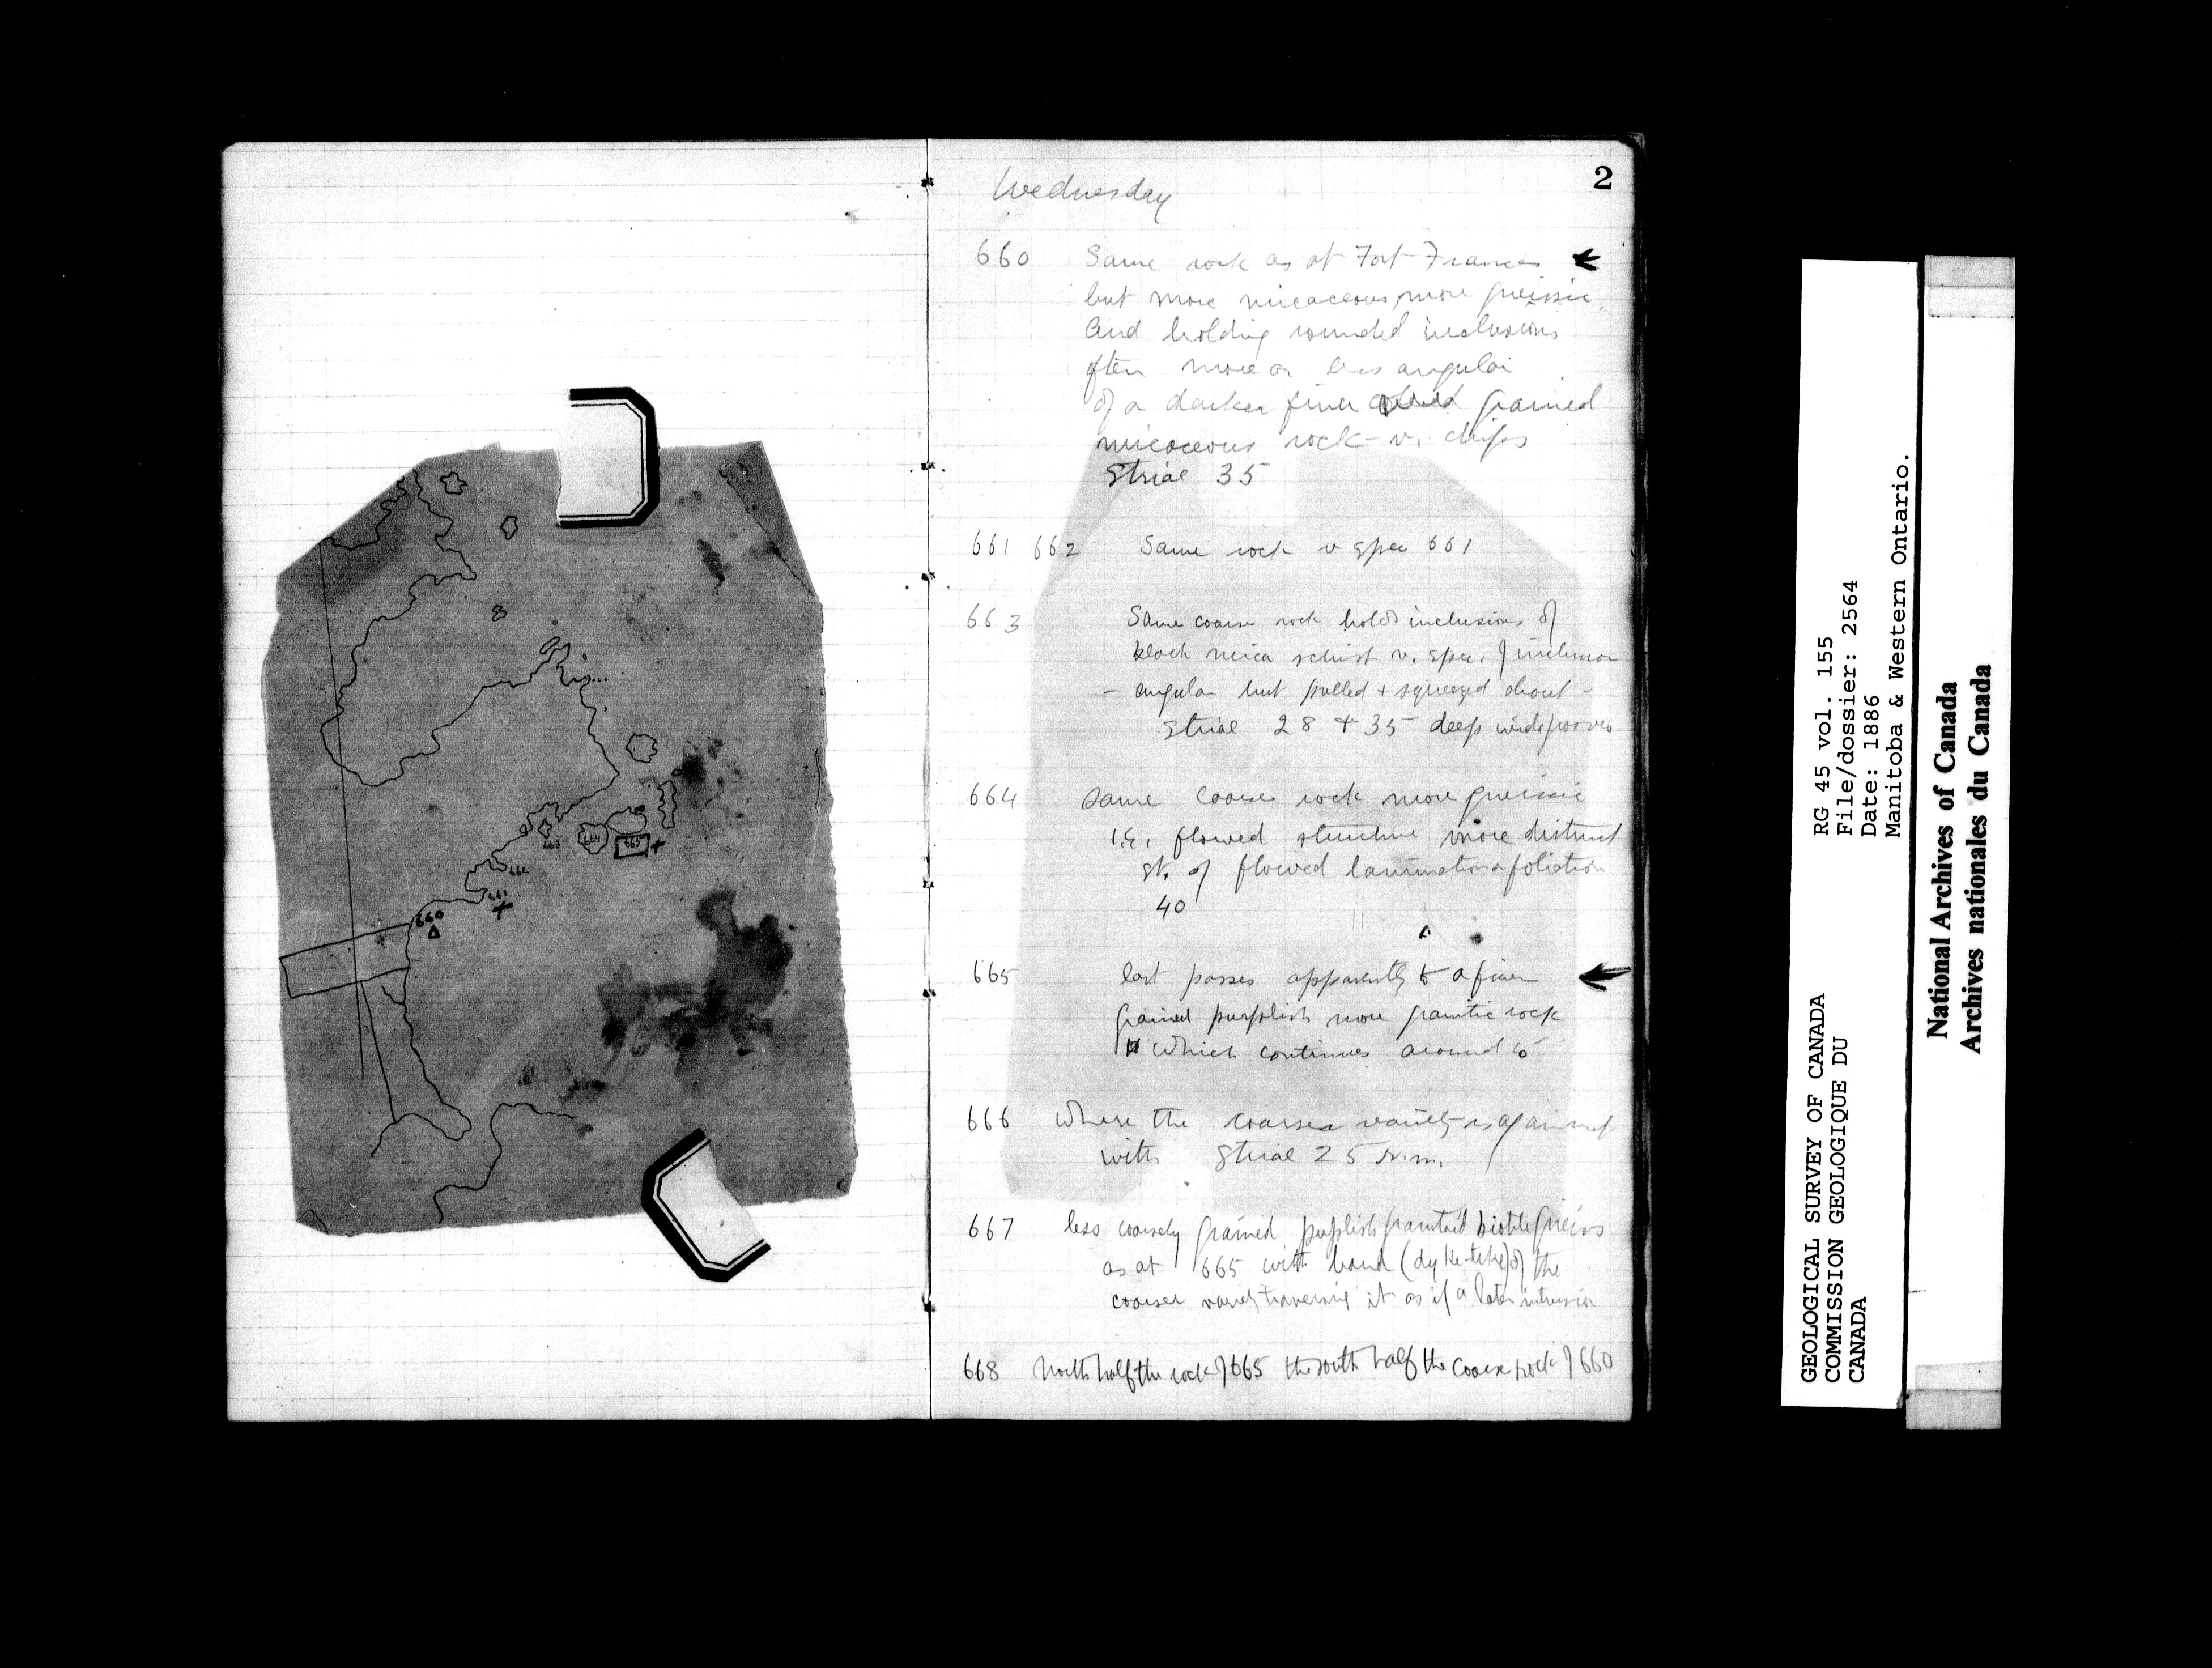 2
Wednesday
660 Same rock as at Fort Frances
but more micaceous, more gneissic,
and holding rounded inclusions
often more or less angular
of a darker finer grained
micaceous rock v. chips
Striae 35
661 662 Same rock v spec 661
663 Same coarse rock holds inclusions of
black mica schist v. spec. of inclusion
- angular but pulled + squeezed about -
Striae 28 + 35 deep wide grooves
664 same coarse rock more gneissic
i.e. flowed structure more distinct
st. of flowed lamination or foliation
40
665 last passes apparently to a finer
grained purplish more granitic rock
which continues around to
666 where the coarser variety is again met
with Striae 25 N.M.
667 less coarsely grained purplish granitoid biotite gneiss
as at 665 with band (dyke-like) of the
coarser variety traversing it as if a later intrusion
668 North half the rock of 665 the south half the coarse rock of 660
660
661
662
663
664
665
GEOLOGICAL SURVEY OF CANADA
COMMISSION GEOLOGIQUE DU
CANADA
RG 45 vol. 155
File/dossier: 2564
Date: 1886
Manitoba & Western Ontario.
National Archives of Canada
Archives nationales du Canada